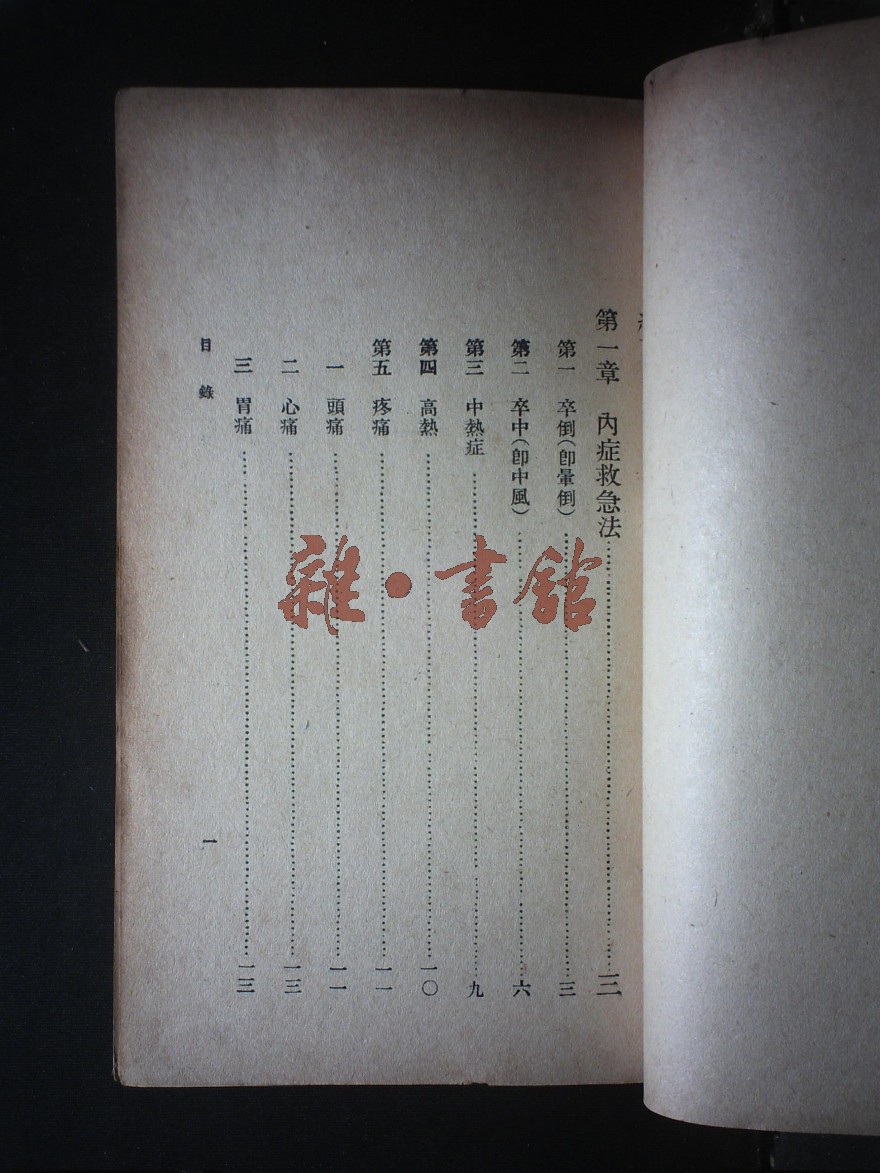 第一章 內症救急法……三
第一 卒倒(卽暈倒)……三
第二 卒中(卽中風)……六
第三 中熱症……九
第四 高熱……一〇
第五 疼痛……一一
一 頭痛……一一
二 心痛……一三
三 胃痛……一三
目錄 一
雜·書館